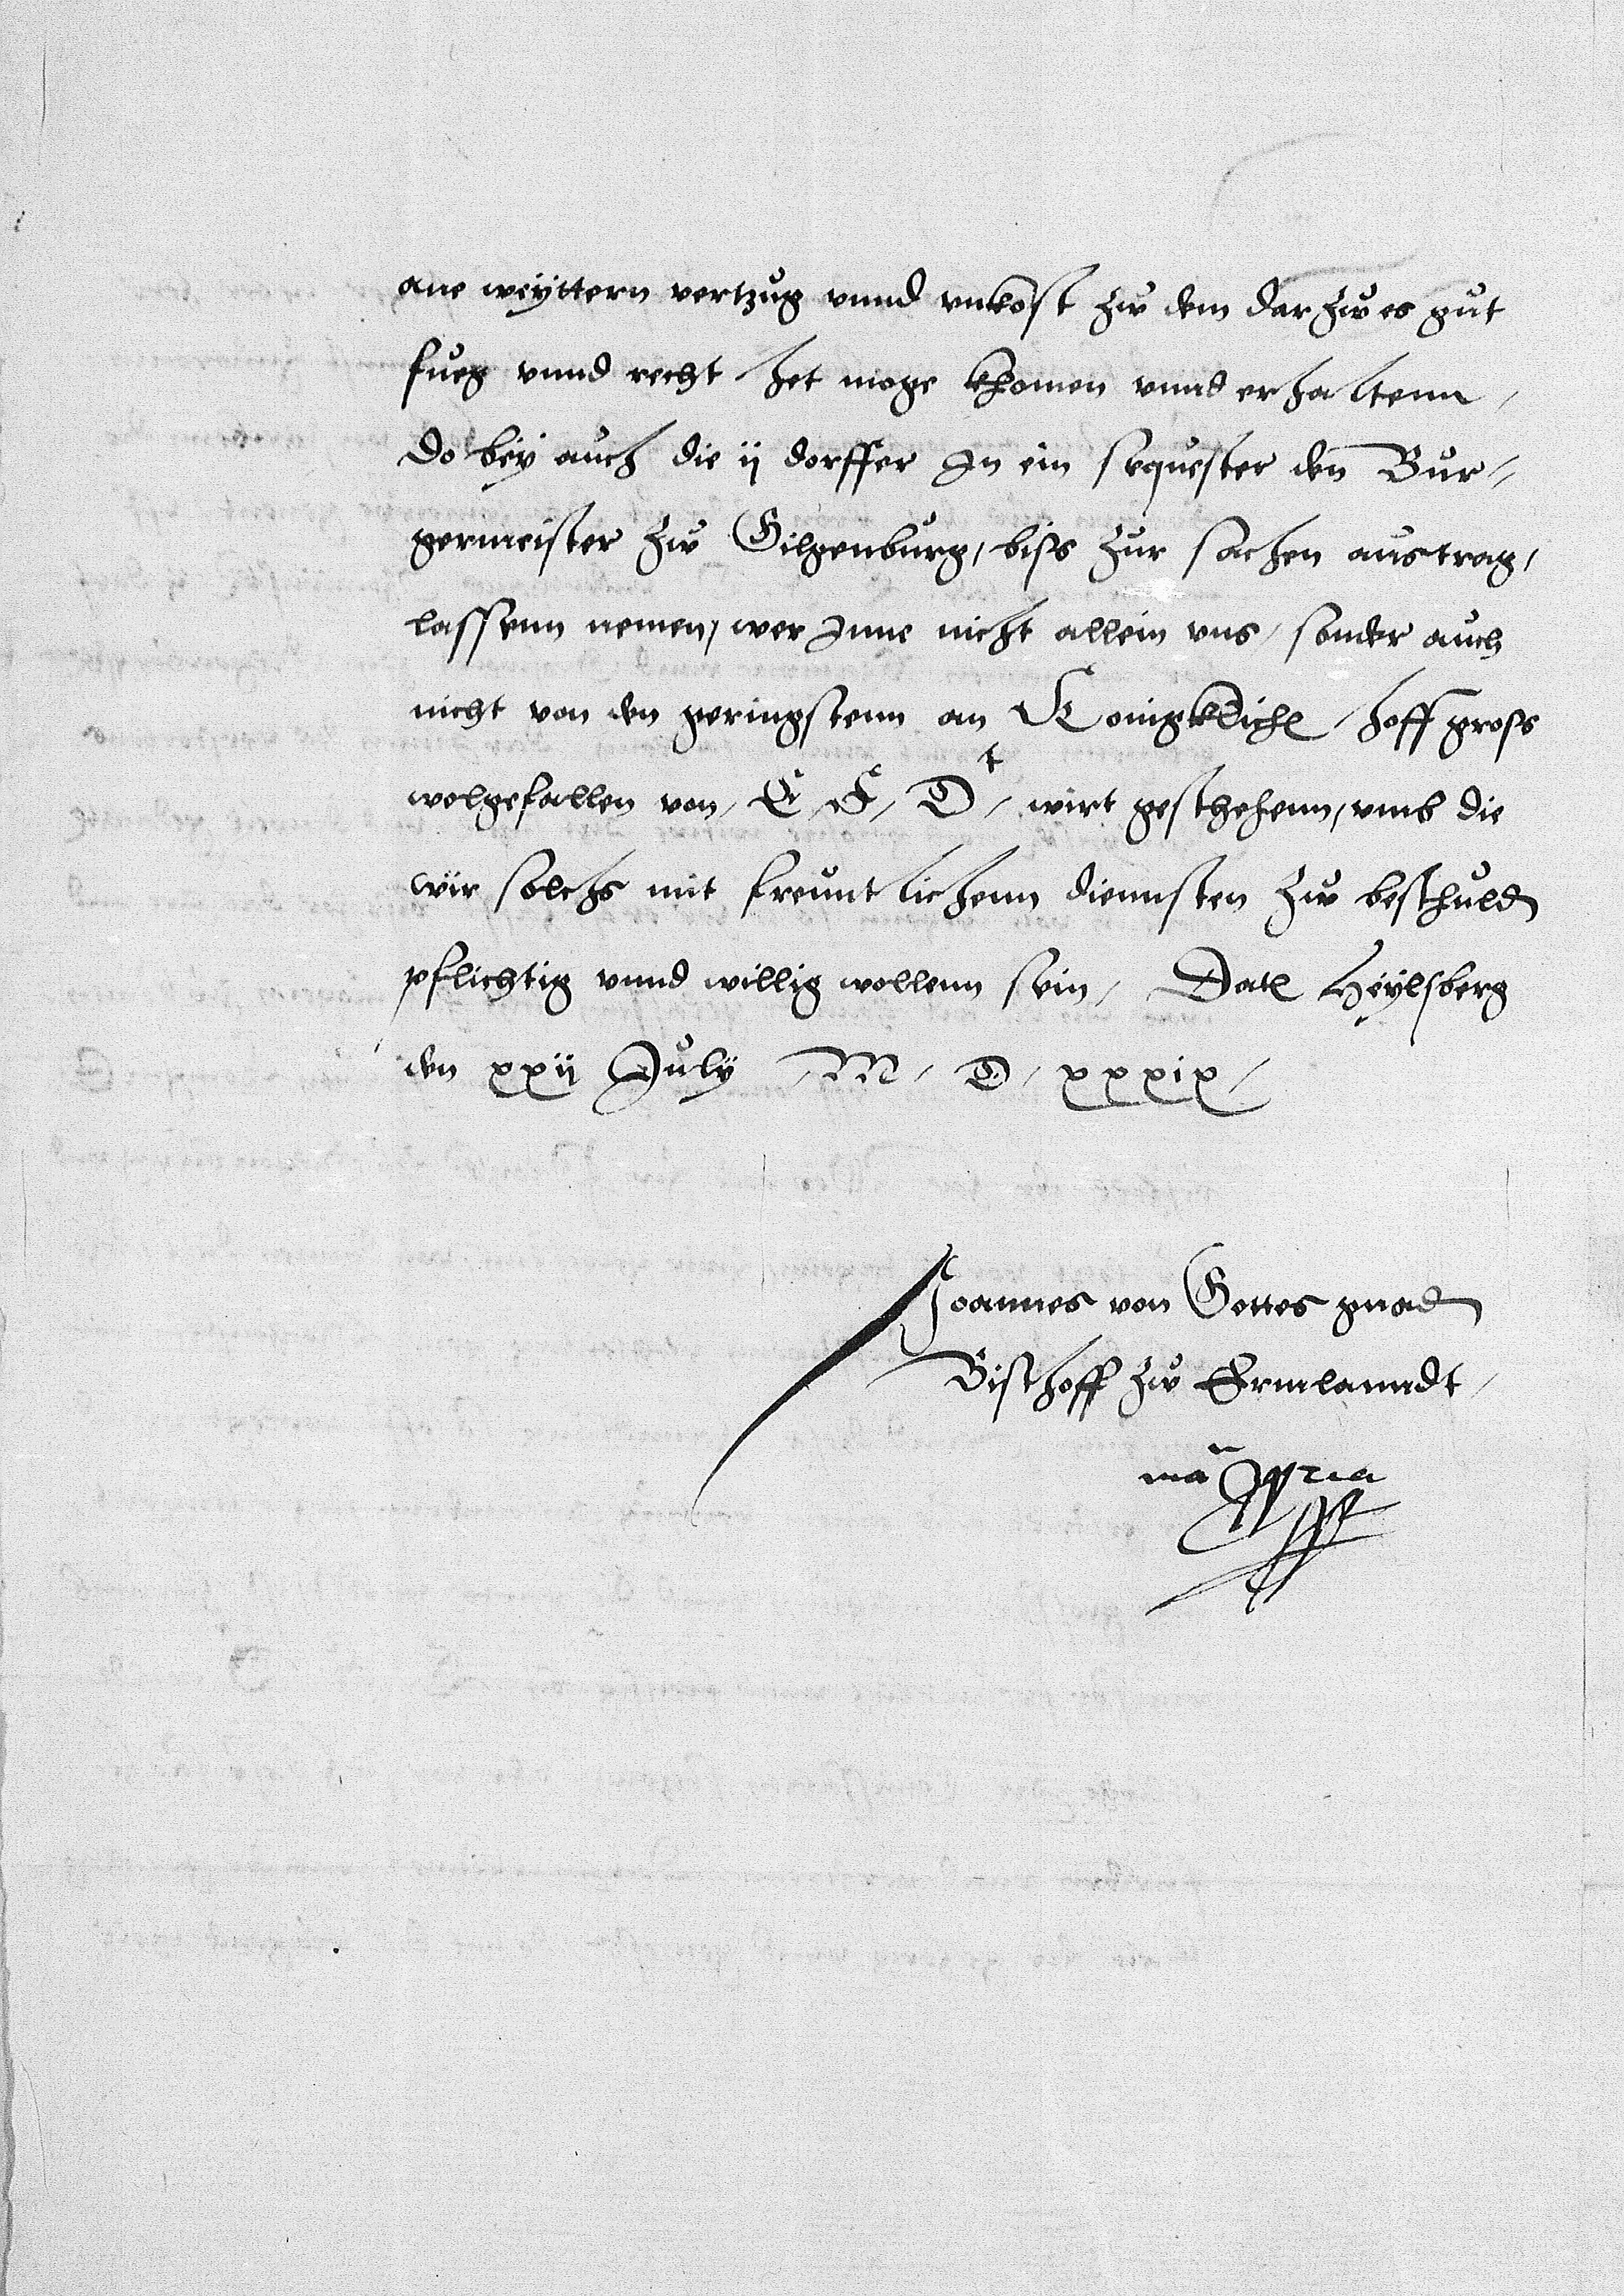 ane weyttern vertzug vnnd vnkost zw dem dar zw es gut
fueg vnnd recht het moge khomen vnnd erhaltenn,
do bey auch die ij dorffer In ein sequester den Bur-
germeister zw Gilgenburg, biss zur sachen austrag,
lassenn nemen, wer Inne nicht allein vns, sonder auch
nicht von den geringstenn an Konigklichem hoff gross
wolgefallen von, E, F, Dt, wirt geschehenn, vmb die
wir solchs mit freuntlichenn diennsten zw beschulden
pflichtig vnnd willig wollenn sein, Datum Heylsberg
den xxij July M, D, xxxix,
Joannes von Gottes gnaden
Bischoff zw Ermlanndt,